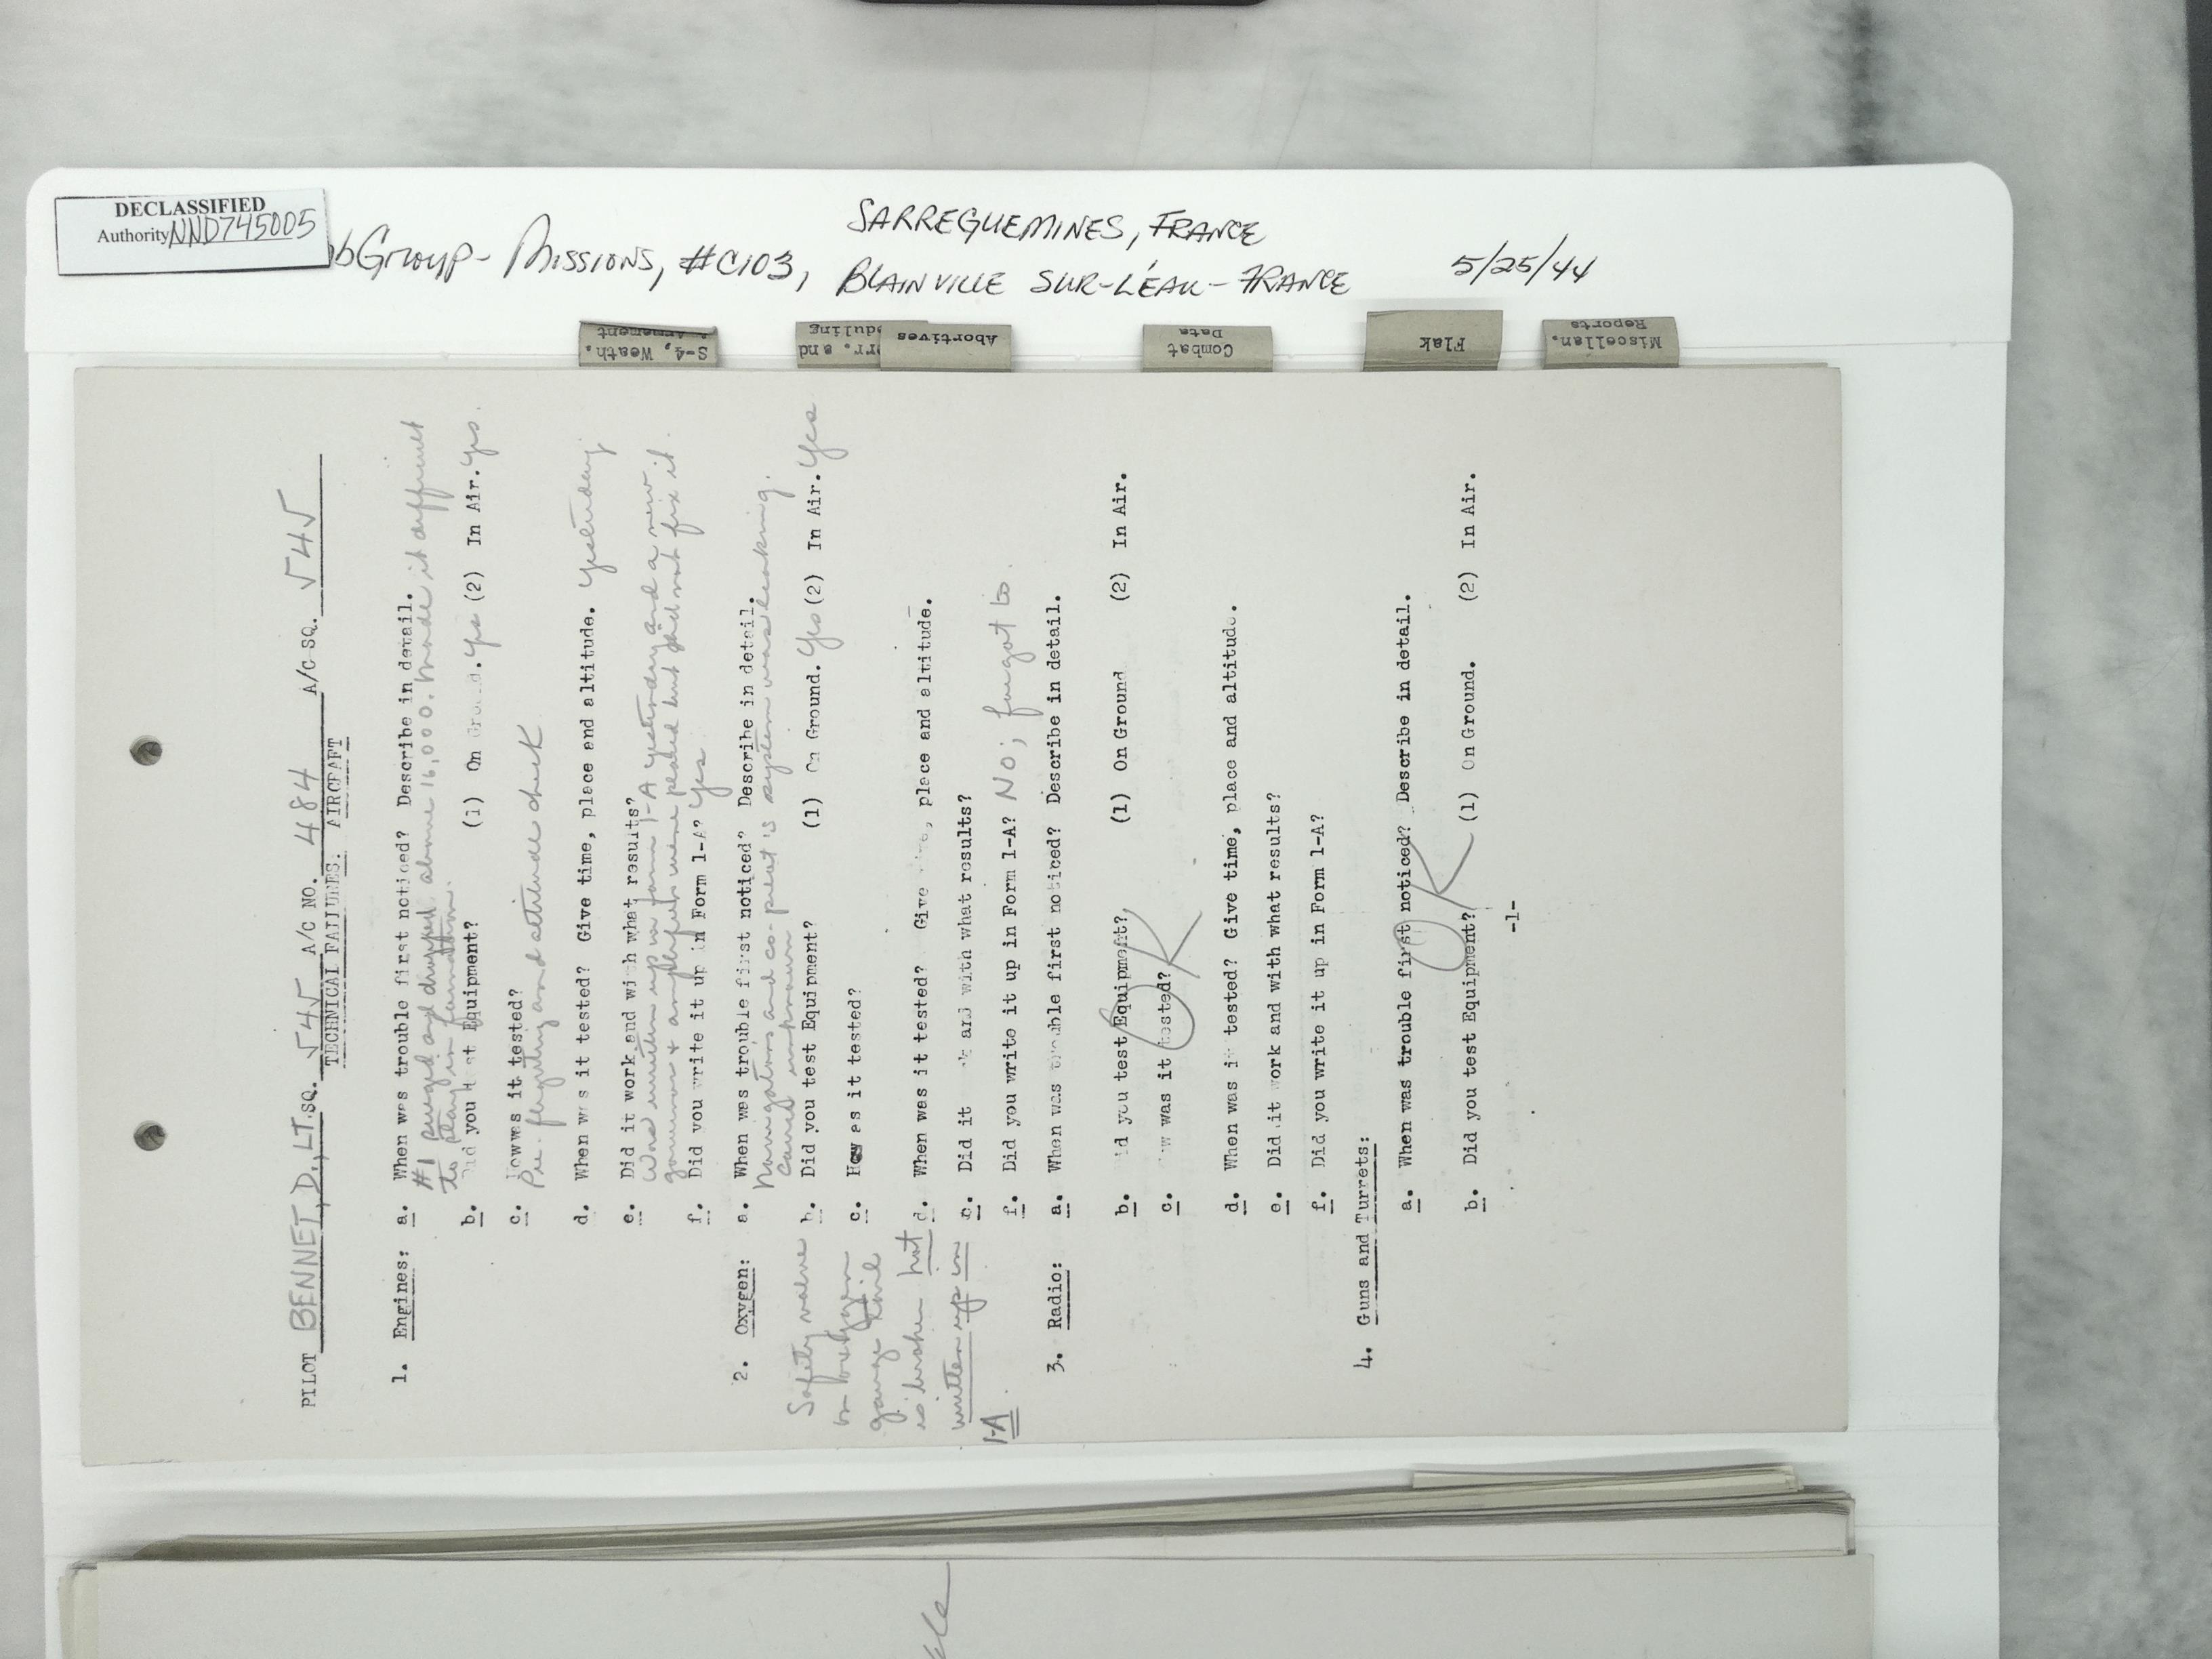 DECLASSIFIED
Authority NND745005
bGroup - Missions, #C103,
SARREGUEMINES, FRANCE
BLAINVILLE SUR-L'EAU - FRANCE
5/25/44
S-4, Weath.
Armement
rr. and
duling
Abortives
Combat
Data
Flak
Miscellan.
Reports
PILOT BENNET, D., LT. SQ. 545 A/C NO. 484 A/C SQ. 545
TECHNICAL FAILURES: AIRCRAFT
1. Engines: a. When was trouble first noticed? Describe in detail.
#1 surged and dropped above 16,000. Made it difficult
to stay in formation.
b. Did you test Equipment? (1) On Ground. Yes (2) In Air. Yes.
c. How was it tested?
Pre-flighting and altitude check
d. When was it tested? Give time, place and altitude. Yesterday
e. Did it work and with what results?
Was written up in form 1-A yesterday and a new
governor & amplifier were put in but did not fix it.
f. Did you write it up in Form 1-A? Yes
2. Oxygen: a. When was trouble first noticed? Describe in detail.
Navigator's and co-pilot's system was leaking.
Cause unknown
b. Did you test Equipment? (1) On Ground. Yes (2) In Air. Yes
c. How was it tested?
d. When was it tested? Give time, place and altitude.
e. Did it and with what results?
f. Did you write it up in Form 1-A? No; forgot to.
Safety valve
on oxygen
gauge
is broken not
written up in
1-A.
3. Radio: a. When was trouble first noticed? Describe in detail.
b. Did you test Equipment? (1) On Ground (2) In Air.
OK
c. How was it tested?
d. When was it tested? Give time, place and altitude.
e. Did it work and with what results?
f. Did you write it up in Form 1-A?
4. Guns and Turrets:
a. When was trouble first noticed? Describe in detail.
OK
b. Did you test Equipment? (1) On Ground. (2) In Air.
-1-